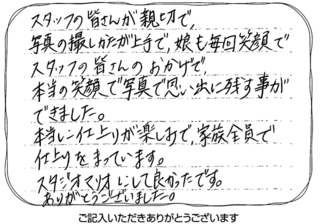 スタッフの皆さんが親切で、
写真の撮しかたが上手で、娘も毎回笑顔で
スタッフの皆さんのおかげで、
本当の笑顔で写真で思い出に残す事が
できました。
本当に仕上りが楽しみで、家族全員で
仕上りをまっています。
スタジオマリオにして良かったです。
ありがとうございました。
ご記入いただきありがとうございます